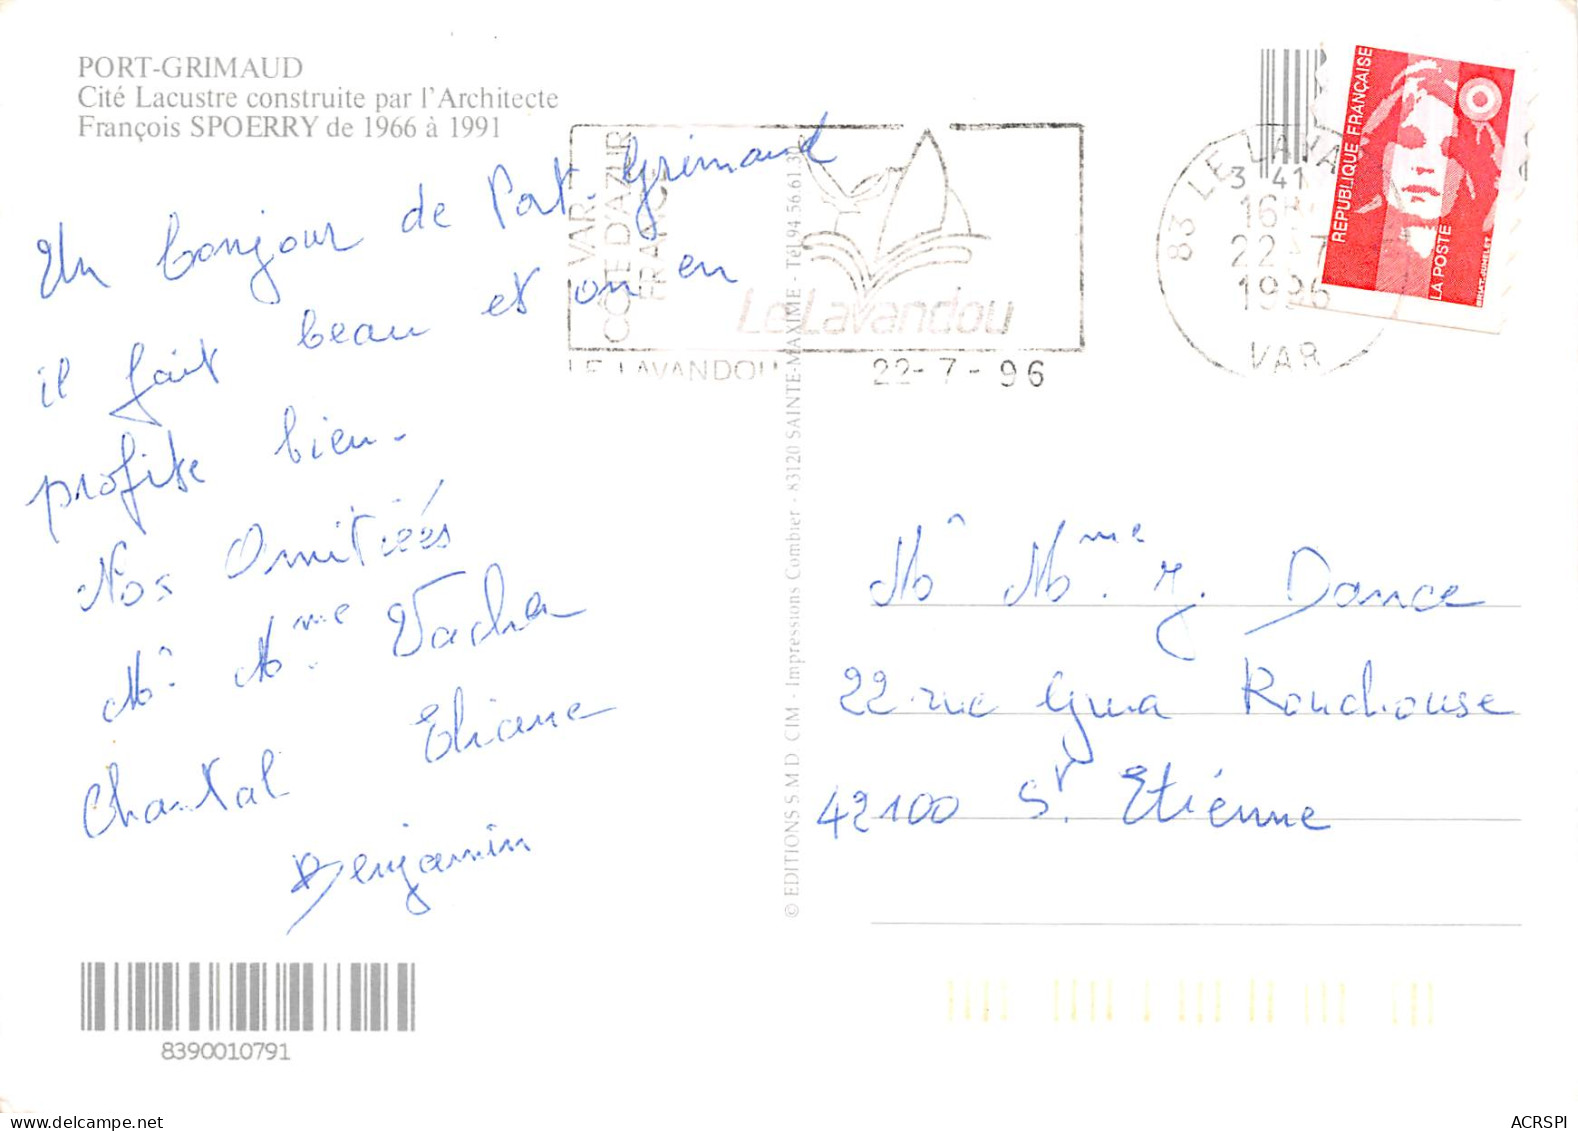 PORT-GRIMAUD
Cité Lacustre construite par l'Architecte
François SPOERRY de 1966 à 1991
Un bonjour de Port-Grimaud
il fait beau et on en
profite bien.
Nos Amitiés
Mr Mme Vacher
Chantal Eliane
Benjamin
8390010791
© EDITIONS S M D CIM - Impressions Combier - 83120 SAINTE-MAXIME - Tél 94.56.61.30
VAR
COTE D'AZUR
FRANCE
Le Lavandou
LE LAVANDOU 22-7-96
83 LE LAVA
3 41
16
22-7
1996
VAR
REPUBLIQUE FRANÇAISE
LA POSTE
BRIAT-JUMELET
Mr Mme J. Dance
22 rue Ronchouse
42100 St. Etiénne
ACRSPI